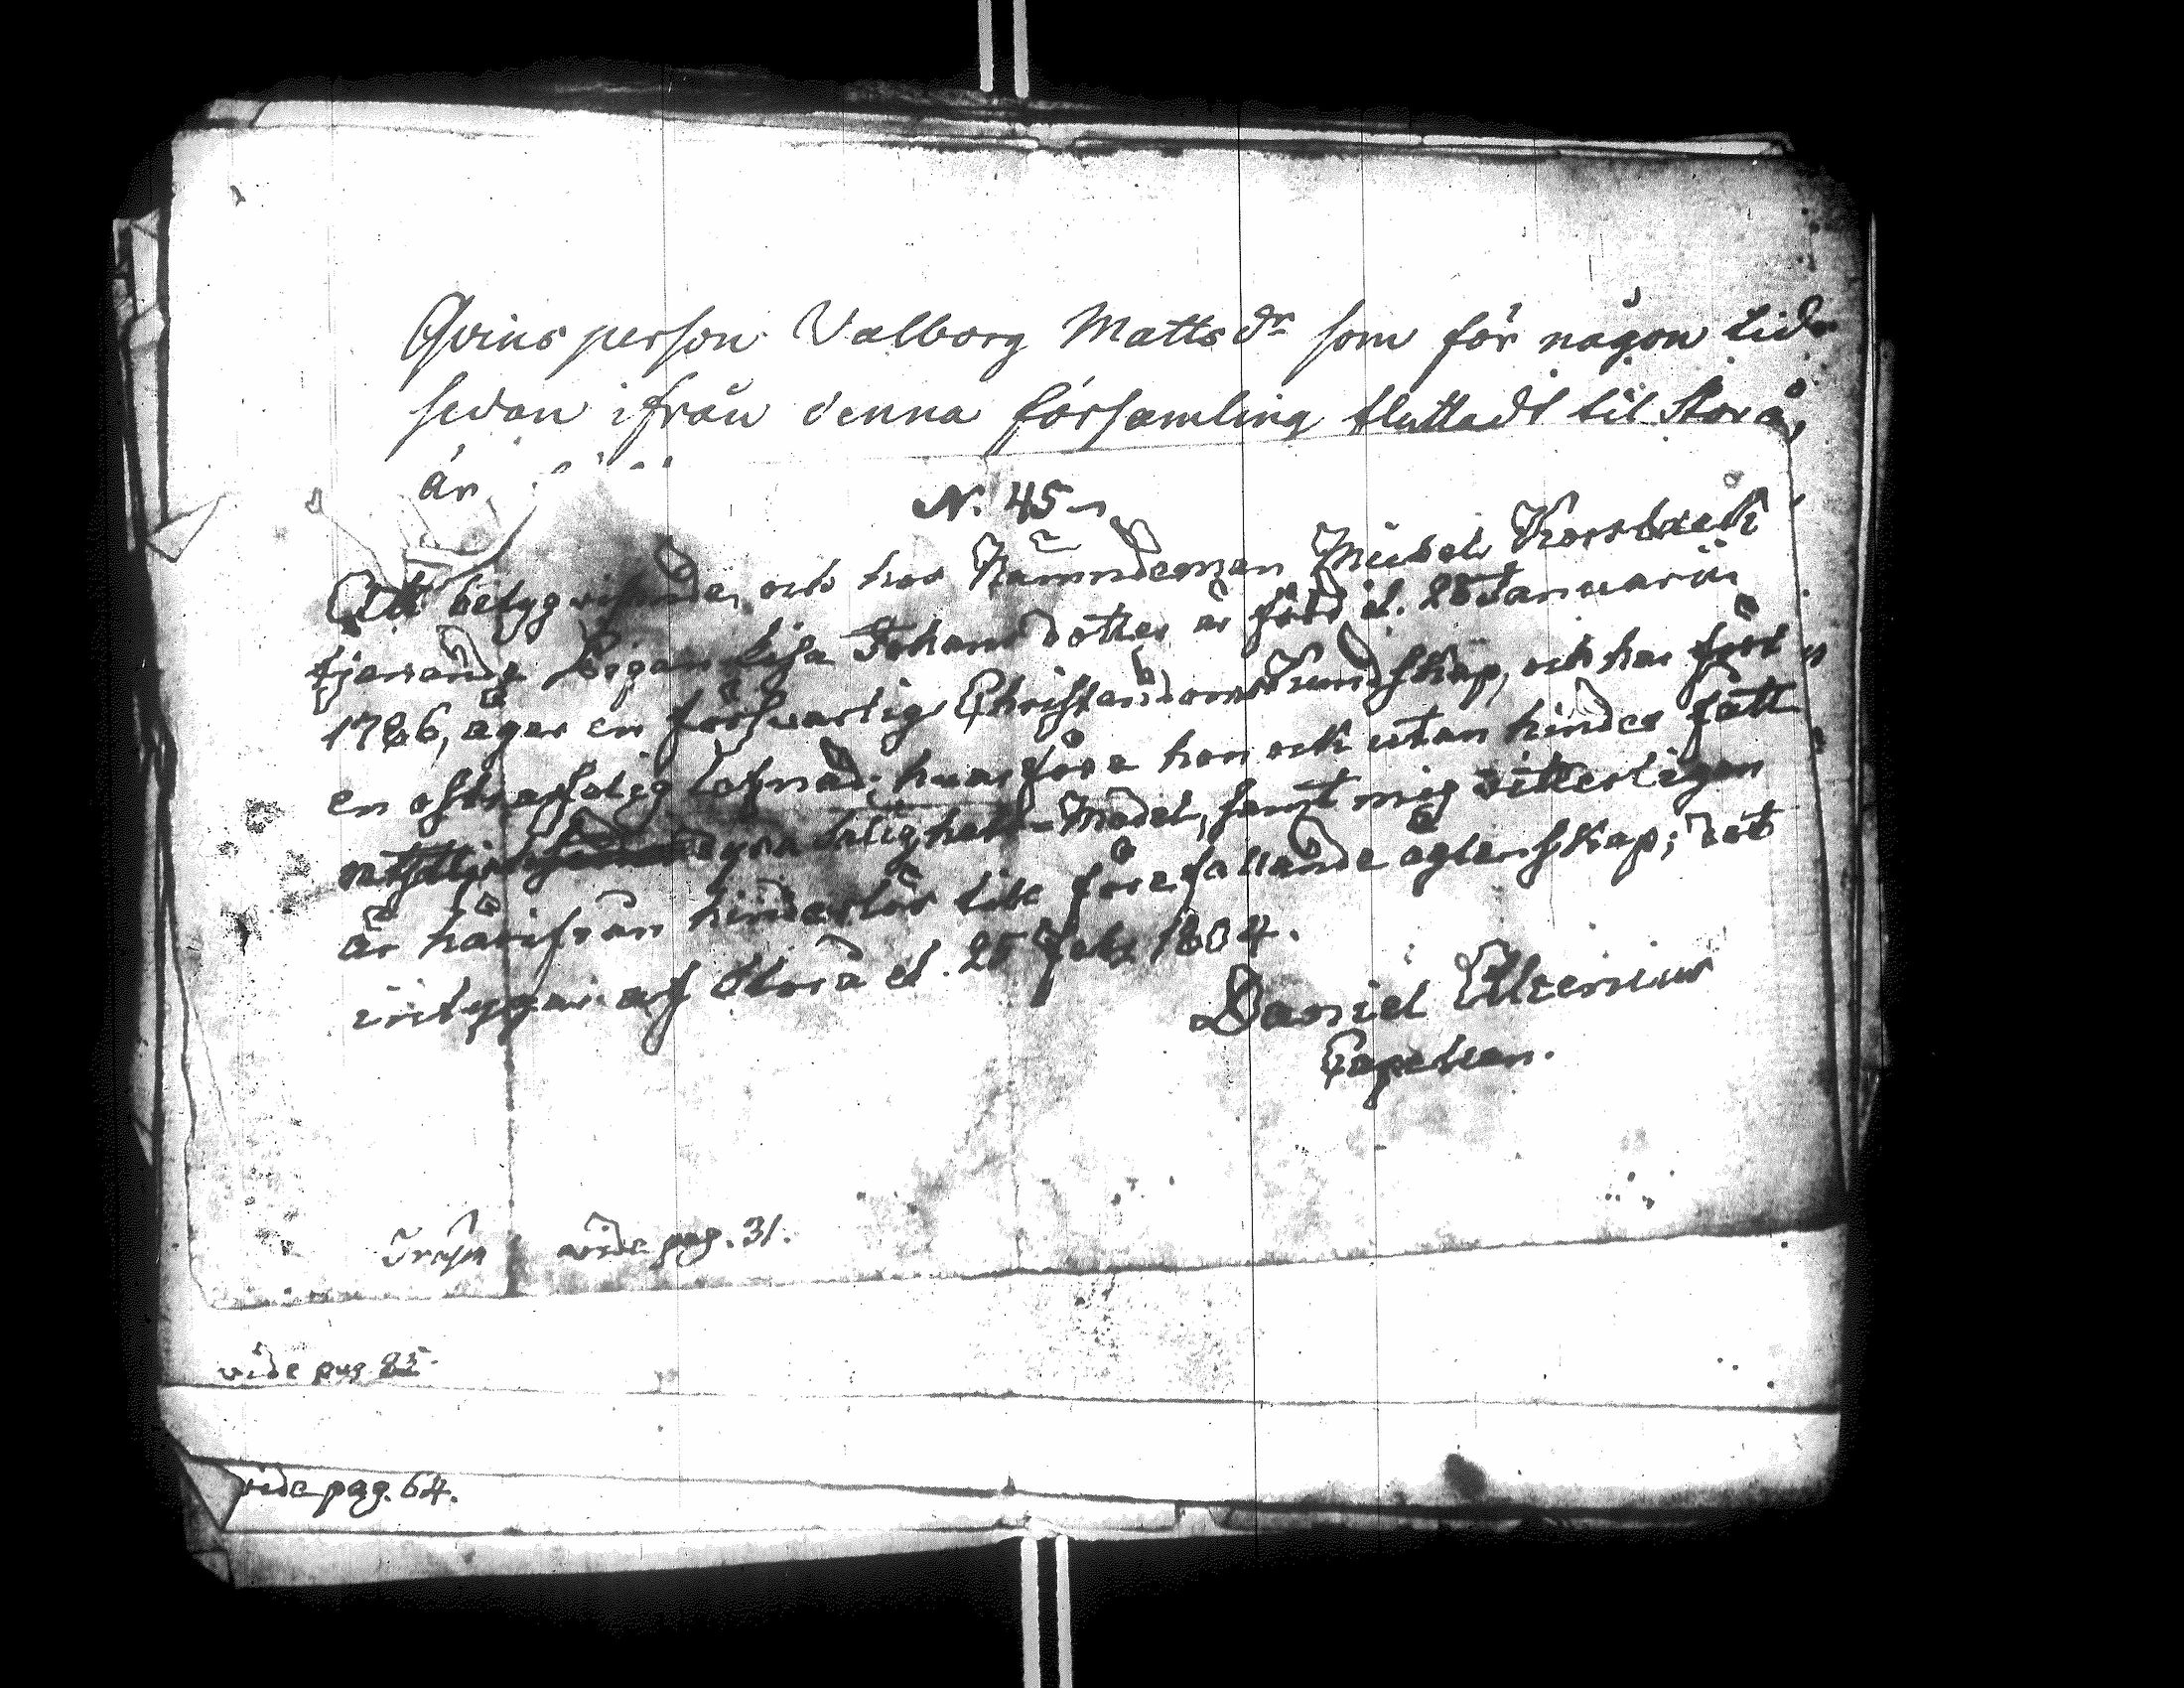 Qvinsperson Valborg Mattsdr som för någon tid
sedan ifrån denna församling fluttadt til Storå,
är
N. 45
betygvisande, och hos Nämndeman Michel Korsbäck
tjenande Pigan Lisa Johansdotter är född d. 25 Januarii
1786, äger en försvarlig Christendomskundskap, och har fört
en ostraffelig lefnad; hvarföre hon ock utan hinder fått
nyttja Nådenes Salighets-Medel, samt mig vitterligen
är härifrån hinderlös till förefallande ägtenskap; det
intygar af Storå d. 25 Feb. 1804.
Daniel
Capellan.
vide pag. 31.
vide pag. 85.
vide pag. 64.